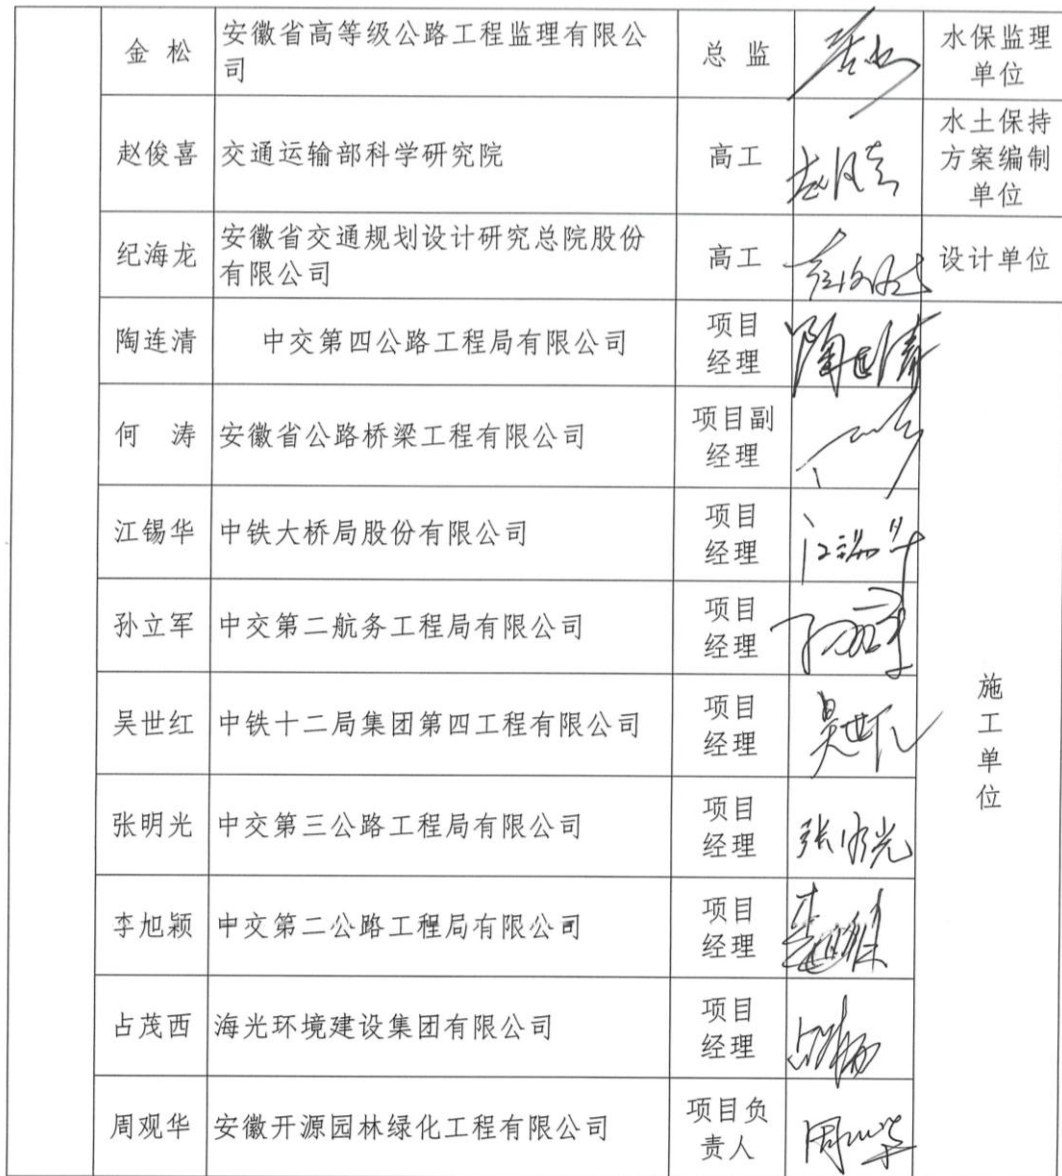 金 松
安徽省高等级公路工程监理有限公
司
总 监
水保监理
单位
赵俊喜
交通运输部科学研究院
高工
赵俊喜
水土保持
方案编制
单位
纪海龙
安徽省交通规划设计研究总院股份
有限公司
高工
设计单位
陶连清
中交第四公路工程局有限公司
项目
经理
陶连清
何 涛
安徽省公路桥梁工程有限公司
项目副
经理
江锡华
中铁大桥局股份有限公司
项目
经理
孙立军
中交第二航务工程局有限公司
项目
经理
吴世红
中铁十二局集团第四工程有限公司
项目
经理
吴世红
张明光
中交第三公路工程局有限公司
项目
经理
张明光
李旭颖
中交第二公路工程局有限公司
项目
经理
占茂西
海光环境建设集团有限公司
项目
经理
周观华
安徽开源园林绿化工程有限公司
项目负
责人
施
工
单
位